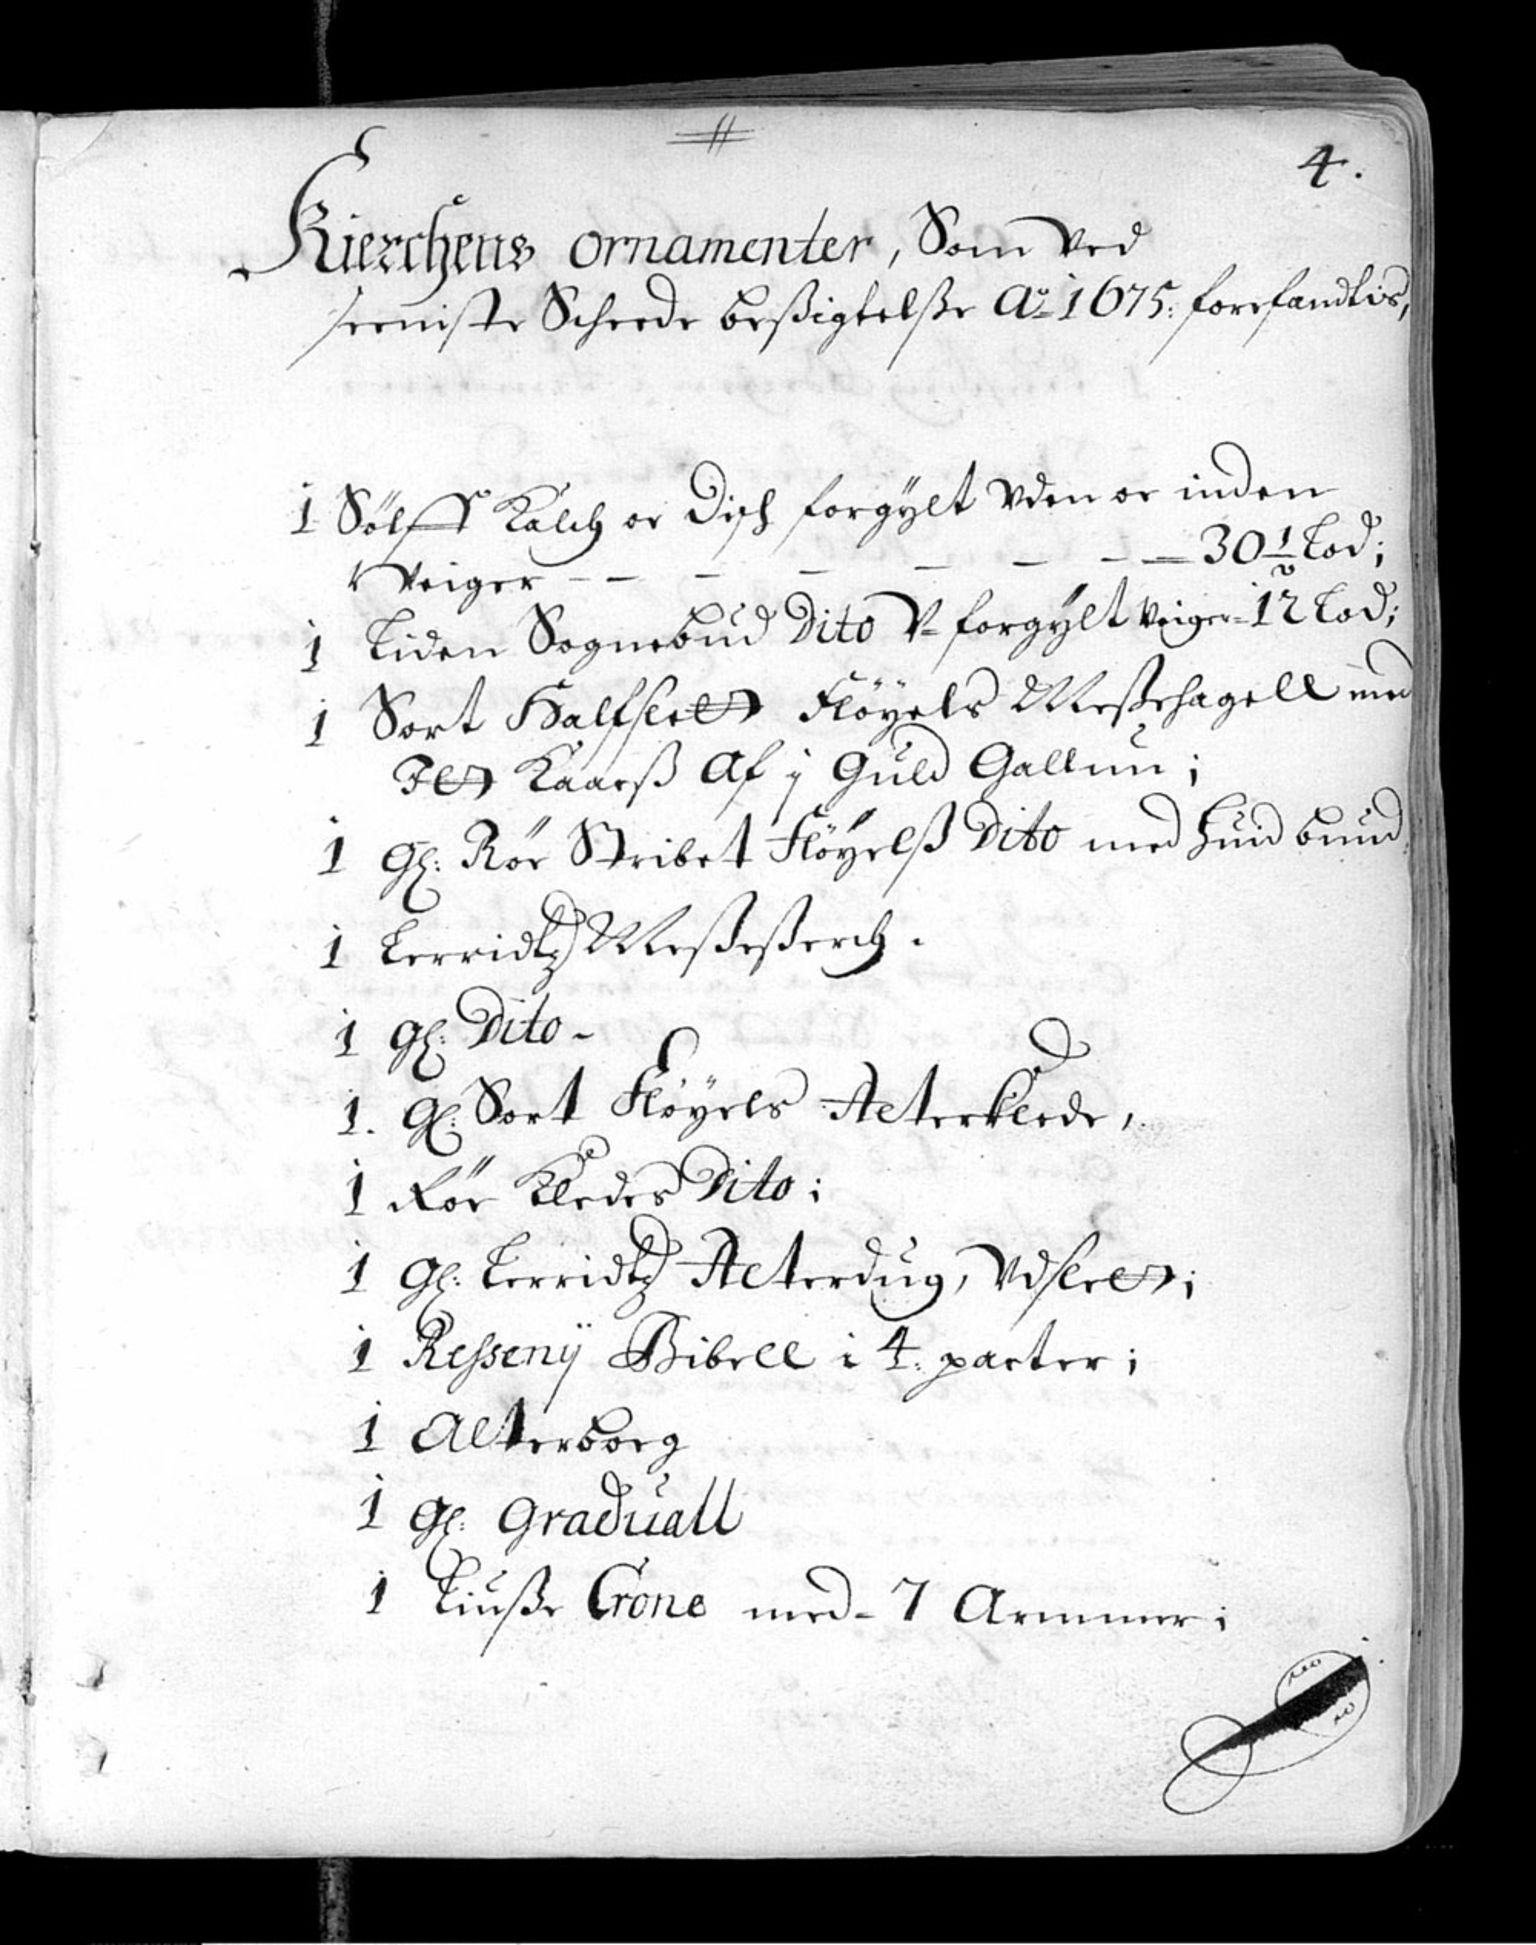 4.
Kierchens ornamenter, Som ved
seeniste Scheede besßigtelße Ao 1675: forefandtis,
1 Sølff Kalch oc Disch forgÿlt Vden oc inden
Veiger - - - - - - - 30 1/2 Lod;
1 Liden Sognebud Dito V- forgÿlt Veiger - 12 Lod;
1 Sort Halfslet Fløyels Meßehagell med
Jtt Kaarß Af j Guld Gallun;
1 Gl: Rør Stribet Fløyelß Dito med huid bund
1 Lerridtz Meßeßerch.
1 gl: Dito -
1. Gl: Sort Fløyels Alterklede,
1 Rør Kledes Dito;
1 Gl: Lerridtz Alterdug, Vdslet;
1 Resseny Bibell i 4: parter;
1 Alterborg
1 Gl: Graduall
1 Liuße Crone med - 7 Armmer;